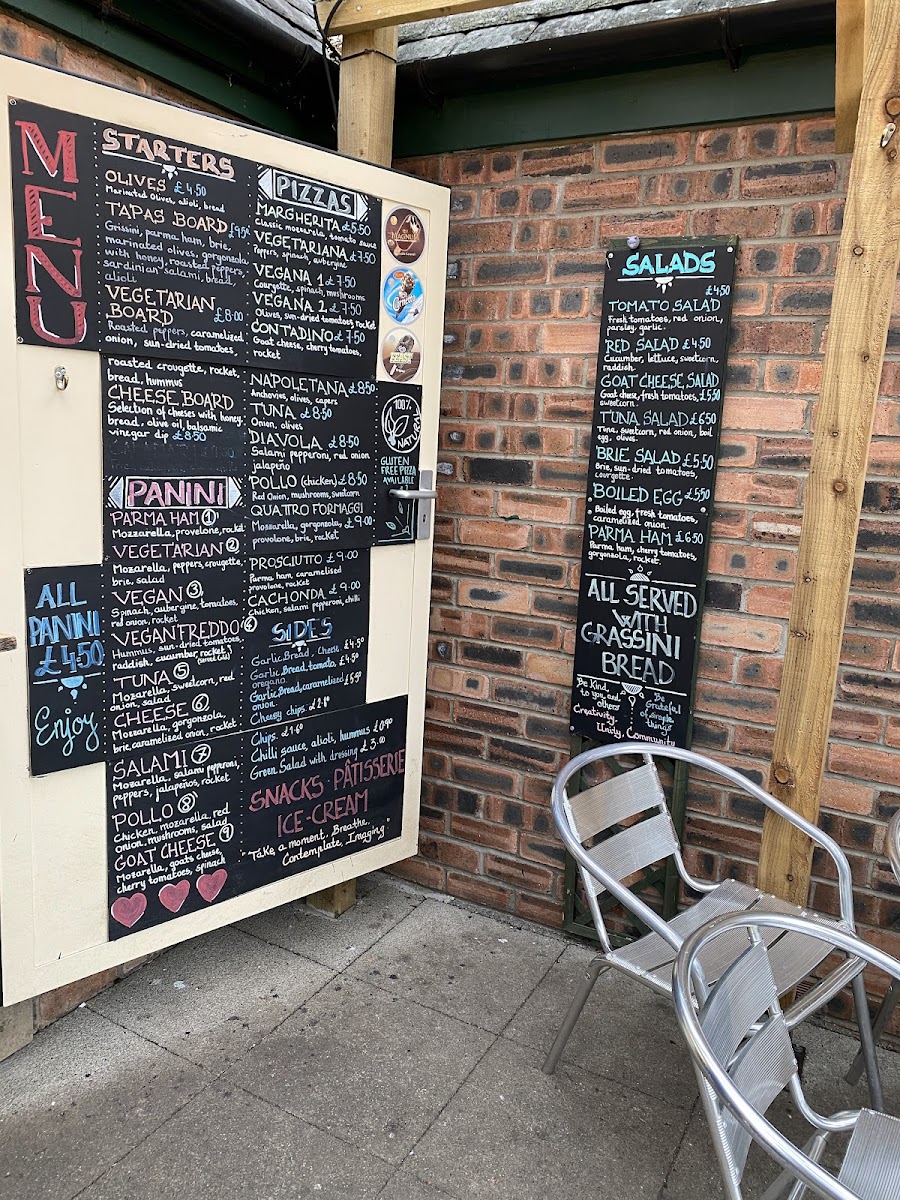 MENU
STARTERS
OLIVES £4.50
Marinated Olives, alioli, bread
TAPAS BOARD £9.50
Grissini, parma ham, brie,
marinated olives, gorgonzola
with honey, roasted peppers,
sardinian salami, bread,
alioli
VEGETARIAN
BOARD £8.00
Roasted peppers, caramelized
onion, sun-dried tomatoes,
roasted crougette, rocket,
bread, hummus
CHEESE BOARD
Selection of cheeses with honey,
bread, olive oil, balsamic
vinegar dip £8.50
PANINI
PARMA HAM 1
Mozzarella, provelone, rocket
VEGETARIAN 2
Mozarella, peppers, crougette,
brie, salad
VEGAN 3
Spinach, aubergine, tomatoes,
red onion, rocket
VEGAN FREDDO 4
Hummus, sun-dried tomatoes,
raddish, cucumber, rocket
(served cold)
TUNA 5
Mozarella, sweetcorn, red
onion, salad
CHEESE 6
Mozarella, gorgonzola,
brie, caramelized onion, rocket
SALAMI 7
Mozarella, salami pepperoni,
peppers, jalapeños, rocket
POLLO 8
Chicken, mozarella, red
onion, mushrooms, salad
GOAT CHEESE 9
Mozarella, goats cheese,
cherry tomatoes, spinach
ALL
PANINI
£4.50
Enjoy
PIZZAS
MARGHERITA £5.50
Classic mozzarella, tomato sauce
VEGETARIANA £7.50
Peppers, spinach, aubergine
VEGANA 1 £7.50
Courgette, spinach, mushrooms
VEGANA 2 £7.50
Olives, sun-dried tomatoes, rocket
CONTADINO £7.50
Goat cheese, cherry tomatoes,
rocket
NAPOLETANA £8.50
Anchovies, olives, capers
TUNA £8.50
Onion, olives
DIAVOLA £8.50
Salami pepperoni, red onion
jalapeño
POLLO (chicken) £8.50
Red Onion, mushrooms, sweetcorn
QUATTRO FORMAGGI
Mozzarella, gorgonzola, £9.00
provelone, brie, rocket
PROSCIUTTO £9.00
Parma ham, caramelised
provelone, rocket
CACHONDA £9.00
Chicken, salami pepperoni, chilli
SIDES
Garlic Bread, Cheese £4.50
Garlic Bread, tomato, £4.50
oregano
Garlic Bread, caramelized £5.50
onion.
Cheesy chips.
Chips.
Chilli sauce, alioli, hummus £0.90
Green Salad with dressing £3.00
SNACKS PÂTISSERIE
ICE-CREAM
"Take a moment, Breathe,
Contemplate, Imagine"
MAGNUM
Cornetto
100%
NATURAL
GLUTEN
FREE PIZZA
AVAILABLE
SALADS
£4.50
TOMATO SALAD
Fresh tomatoes, red onion,
parsley, garlic.
RED SALAD £4.50
Cucumber, lettuce, sweetcorn,
raddish.
GOAT CHEESE SALAD
Goat cheese, fresh tomatoes, £5.50
sweetcorn
TUNA SALAD £6.50
Tuna, sweetcorn, red onion, boil
egg, olives.
BRIE SALAD £5.50
Brie, sun-dried tomatoes,
courgette.
BOILED EGG £5.50
Boiled egg, fresh tomatoes,
caramelized onion.
PARMA HAM £6.50
Parma ham, cherry tomatoes,
gorgonzola, rocket.
ALL SERVED
WITH
GRASSINI
BREAD
Be Kind,
to you and
others
Creativity,
Be
Grateful
of simple
things
Unity, Community